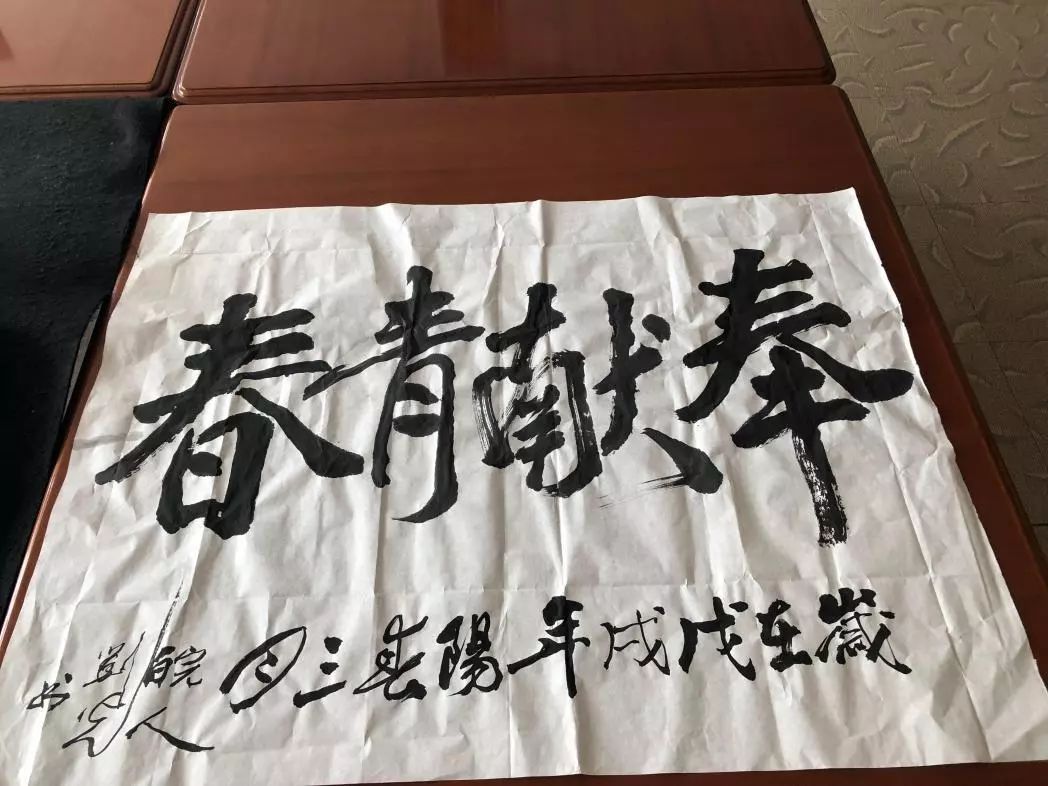 奉献青春
歲在戊戌年陽春三月
皖人
劉
书